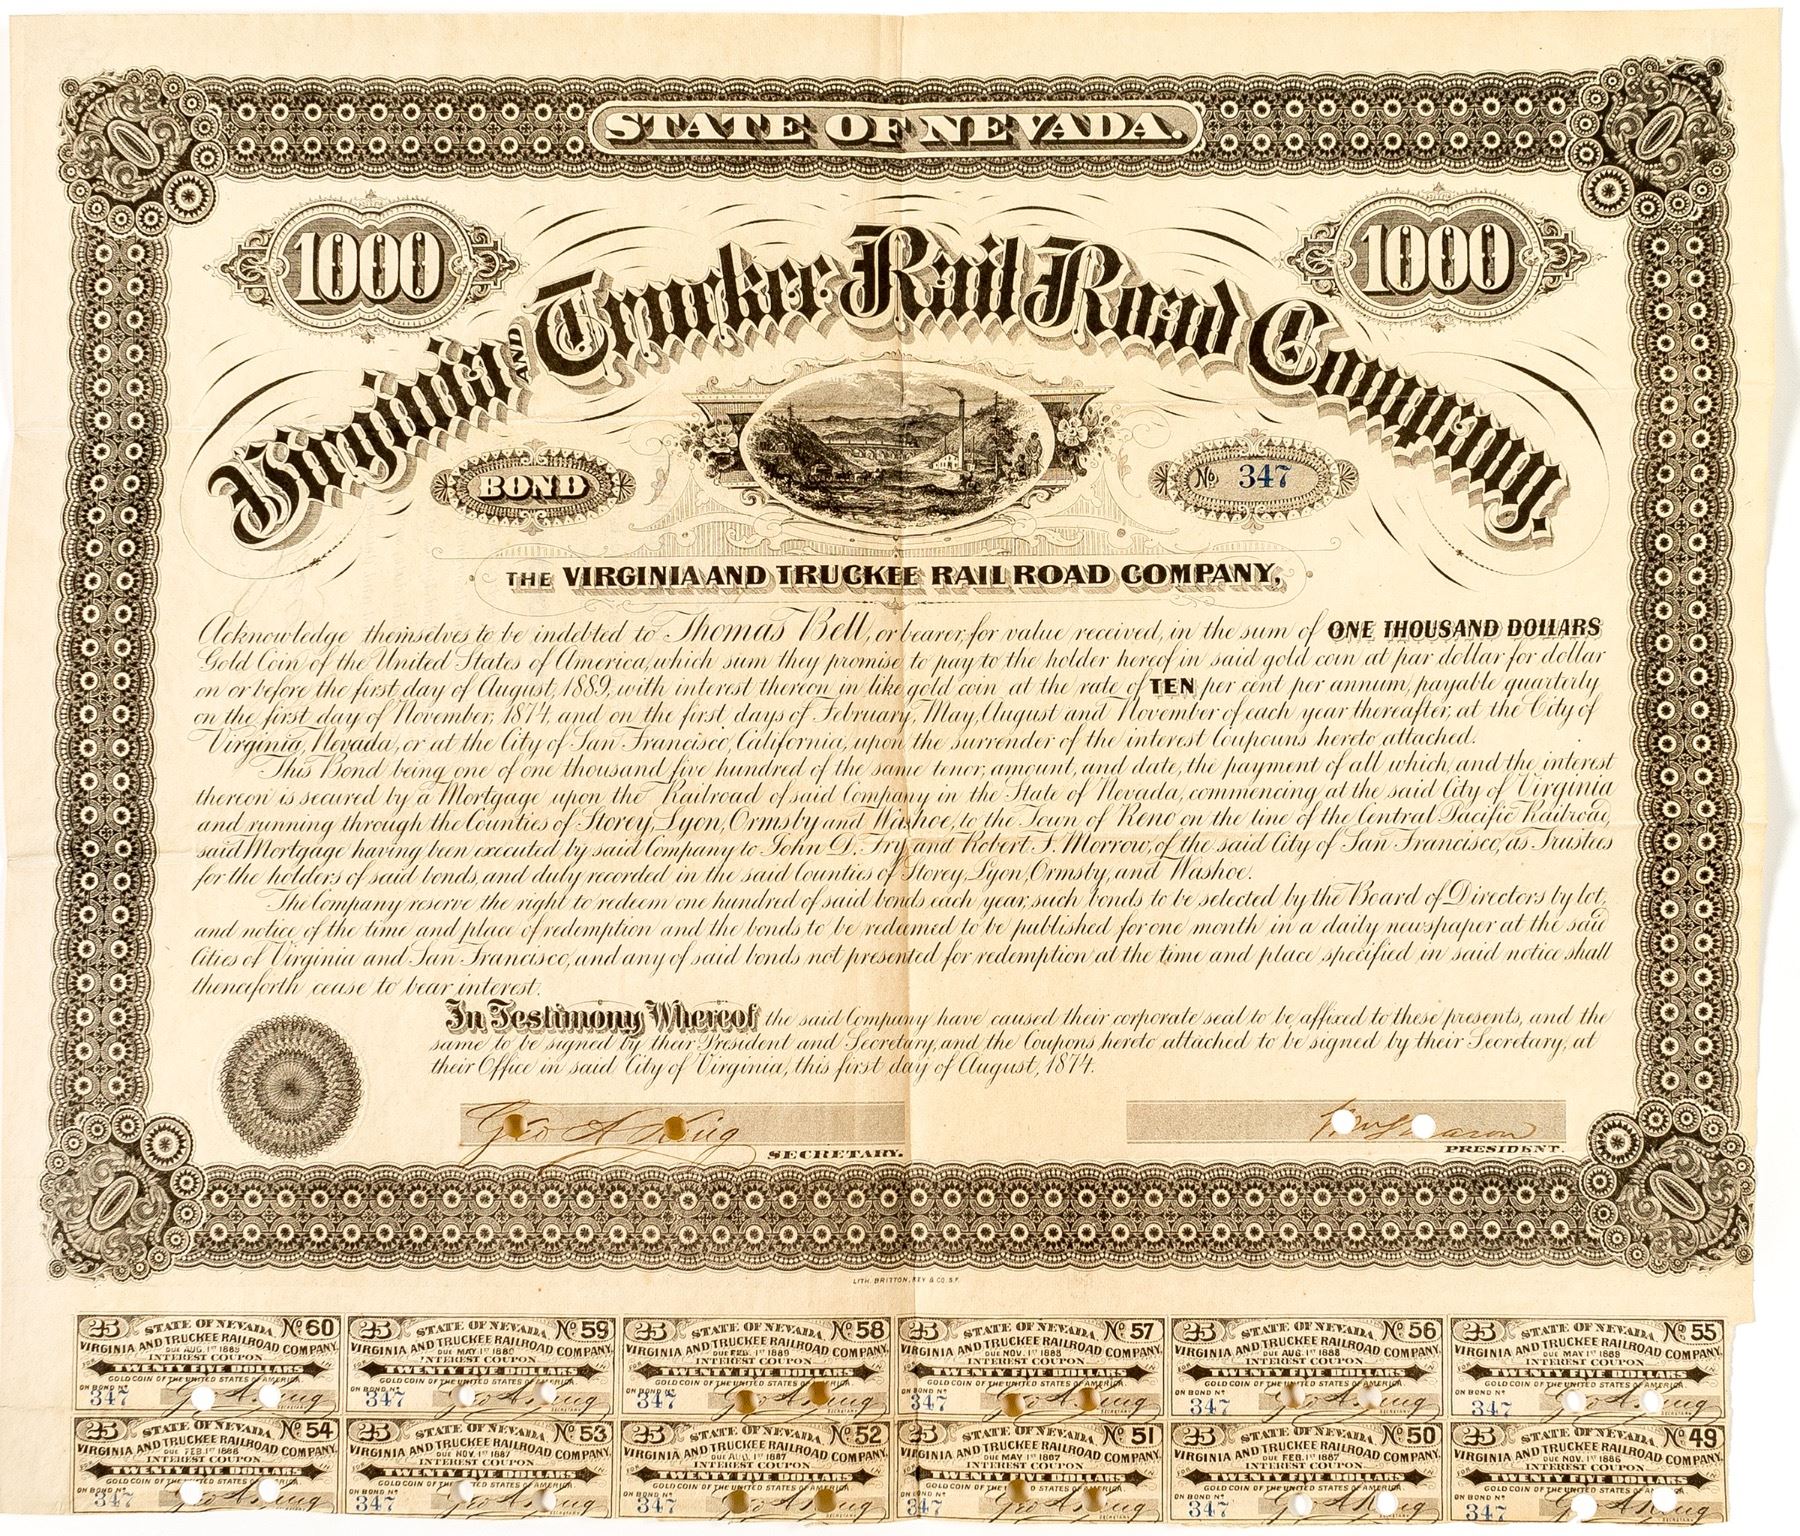 STATE OF NEVADA.
1000
1000
Virginia AND Truckee Rail Road Company.
BOND
No 347
THE VIRGINIA AND TRUCKEE RAILROAD COMPANY,
Acknowledge themselves to be indebted to Thomas Bell, or bearer, for value received, in the sum of ONE THOUSAND DOLLARS
Gold Coin of the United States of America, which sum they promise to pay to the holder hereof in said gold coin at par dollar for dollar
on or before the first day of August, 1889, with interest thereon in like gold coin at the rate of TEN per cent per annum, payable quarterly
on the first day of November, 1874, and on the first days of February, May, August and November of each year thereafter, at the City of
Virginia, Nevada, or at the City of San Francisco, California, upon the surrender of the interest Coupouns hereto attached.
This Bond being one of one thousand five hundred of the same tenor, amount, and date, the payment of all which, and the interest
thereon is secured by a Mortgage upon the Railroad of said Company in the State of Nevada, commencing at the said City of Virginia
and running through the Counties of Storey, Lyon, Ormsby and Washoe, to the Town of Reno on the line of the Central Pacific Railroad,
said Mortgage having been executed by said Company to John D. Fry and Robert F. Morrow, of the said City of San Francisco, as Trustees
for the holders of said bonds, and duly recorded in the said Counties of Storey, Lyon, Ormsby, and Washoe.
The Company reserve the right to redeem one hundred of said bonds each year, such bonds to be selected by the Board of Directors by lot,
and notice of the time and place of redemption and the bonds to be redeemed to be published for one month in a daily newspaper at the said
Cities of Virginia and San Francisco, and any of said bonds not presented for redemption at the time and place specified in said notice shall
thenceforth cease to bear interest.
In Testimony Whereof the said Company have caused their corporate seal to be affixed to these presents, and the
same to be signed by their President and Secretary, and the Coupons hereto attached to be signed by their Secretary, at
their Office in said City of Virginia, this first day of August, 1874.
Geo A King
SECRETARY.
PRESIDENT.
LITH. BRITTON, REY & CO. S.F.
25 STATE OF NEVADA No 60
VIRGINIA AND TRUCKEE RAILROAD COMPANY.
DUE AUG. 1ST 1889
INTEREST COUPON
FOR TWENTY FIVE DOLLARS IN
GOLD COIN OF THE UNITED STATES OF AMERICA.
ON BOND No
347 Geo A King
SECRETARY
25 STATE OF NEVADA No 59
VIRGINIA AND TRUCKEE RAILROAD COMPANY.
DUE MAY 1ST 1889
INTEREST COUPON
FOR TWENTY FIVE DOLLARS IN
GOLD COIN OF THE UNITED STATES OF AMERICA.
ON BOND No
347 Geo A King
SECRETARY
25 STATE OF NEVADA No 58
VIRGINIA AND TRUCKEE RAILROAD COMPANY.
DUE FEB. 1ST 1889
INTEREST COUPON
FOR TWENTY FIVE DOLLARS IN
GOLD COIN OF THE UNITED STATES OF AMERICA.
ON BOND No
347 Geo A King
SECRETARY
25 STATE OF NEVADA No 57
VIRGINIA AND TRUCKEE RAILROAD COMPANY.
DUE NOV. 1ST 1888
INTEREST COUPON
FOR TWENTY FIVE DOLLARS IN
GOLD COIN OF THE UNITED STATES OF AMERICA.
ON BOND No
347 Geo A King
SECRETARY
25 STATE OF NEVADA No 56
VIRGINIA AND TRUCKEE RAILROAD COMPANY.
DUE AUG. 1ST 1888
INTEREST COUPON
FOR TWENTY FIVE DOLLARS IN
GOLD COIN OF THE UNITED STATES OF AMERICA.
ON BOND No
347 Geo A King
SECRETARY
25 STATE OF NEVADA No 55
VIRGINIA AND TRUCKEE RAILROAD COMPANY.
DUE MAY 1ST 1888
INTEREST COUPON
FOR TWENTY FIVE DOLLARS IN
GOLD COIN OF THE UNITED STATES OF AMERICA.
ON BOND No
347 Geo A King
SECRETARY
25 STATE OF NEVADA No 54
VIRGINIA AND TRUCKEE RAILROAD COMPANY.
DUE FEB. 1ST 1888
INTEREST COUPON
FOR TWENTY FIVE DOLLARS IN
GOLD COIN OF THE UNITED STATES OF AMERICA.
ON BOND No
347 Geo A King
SECRETARY
25 STATE OF NEVADA No 53
VIRGINIA AND TRUCKEE RAILROAD COMPANY.
DUE NOV. 1ST 1887
INTEREST COUPON
FOR TWENTY FIVE DOLLARS IN
GOLD COIN OF THE UNITED STATES OF AMERICA.
ON BOND No
347 Geo A King
SECRETARY
25 STATE OF NEVADA No 52
VIRGINIA AND TRUCKEE RAILROAD COMPANY.
DUE AUG. 1ST 1887
INTEREST COUPON
FOR TWENTY FIVE DOLLARS IN
GOLD COIN OF THE UNITED STATES OF AMERICA.
ON BOND No
347 Geo A King
SECRETARY
25 STATE OF NEVADA No 51
VIRGINIA AND TRUCKEE RAILROAD COMPANY.
DUE MAY 1ST 1887
INTEREST COUPON
FOR TWENTY FIVE DOLLARS IN
GOLD COIN OF THE UNITED STATES OF AMERICA.
ON BOND No
347 Geo A King
SECRETARY
25 STATE OF NEVADA No 50
VIRGINIA AND TRUCKEE RAILROAD COMPANY.
DUE FEB. 1ST 1887
INTEREST COUPON
FOR TWENTY FIVE DOLLARS IN
GOLD COIN OF THE UNITED STATES OF AMERICA.
ON BOND No
347 Geo A King
SECRETARY
25 STATE OF NEVADA No 49
VIRGINIA AND TRUCKEE RAILROAD COMPANY.
DUE NOV. 1ST 1886
INTEREST COUPON
FOR TWENTY FIVE DOLLARS IN
GOLD COIN OF THE UNITED STATES OF AMERICA.
ON BOND No
347 Geo A King
SECRETARY